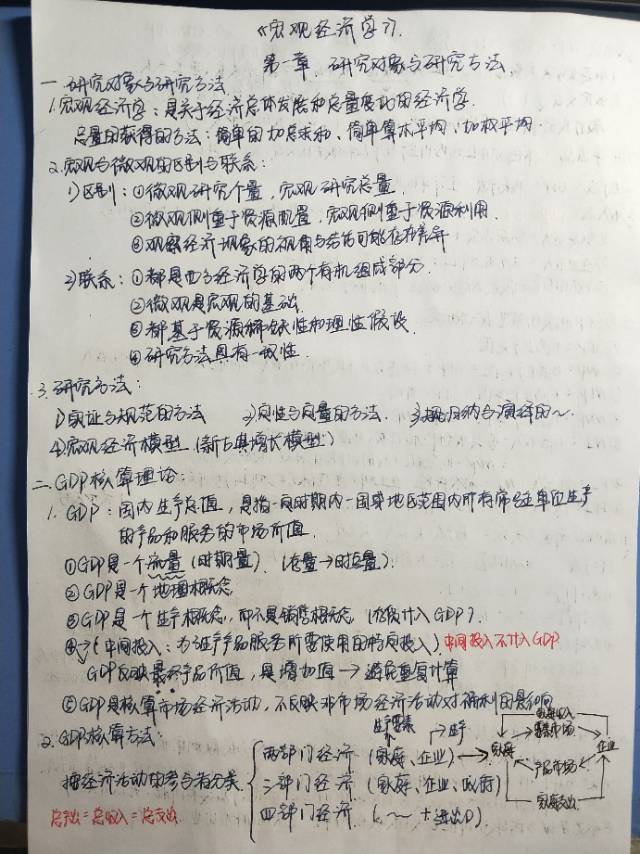 《宏观经济学》.
第一章. 研究对象与研究方法
一. 研究对象与研究方法
1. 宏观经济学：是关于经济总体发展和总量变化的经济学.
总量的获得的方法：简单的加总求和、简单算术平均、加权平均.
2. 宏观与微观的区别与联系：
1) 区别：①微观研究个量, 宏观研究总量.
②微观侧重于资源配置, 宏观侧重于资源利用.
③观察经济现象的视角与结论可能存在差异
2) 联系：①都是西方经济学的两个有机组成部分.
②微观是宏观的基础.
③都基于资源稀缺性和理性假设.
④研究方法具有一致性.
3. 研究方法：
1) 实证与规范的方法 2) 定性与定量的方法. 3) 归纳与演绎的~.
4) 宏观经济模型. (新古典增长模型)
二. GDP核算理论：
1. GDP：国内生产总值, 是指一定时期内一国或地区范围内所有常住单位生产
的产品和服务的市场价值.
①GDP是一个流量 (时期量). (存量→时点量).
②GDP是一个地理概念
③GDP是一个生产概念, 而不是销售概念 (存货计入GDP).
④ (中间投入：为生产产品服务所要使用的投入) 中间投入不计入GDP
GDP反映最终产品价值, 是增加值→避免重复计算
⑤GDP是核算市场经济活动, 不反映非市场经济活动对福利的影响
2. GDP核算方法：
生产要素 生产
按经济活动的参与者分类 两部门经济 (家庭、企业) → 家庭 要素市场 企业
产品市场
三部门经济 (家庭、企业、政府)
家庭支出
总产出=总收入=总支出 四部门经济 (~+进出口).